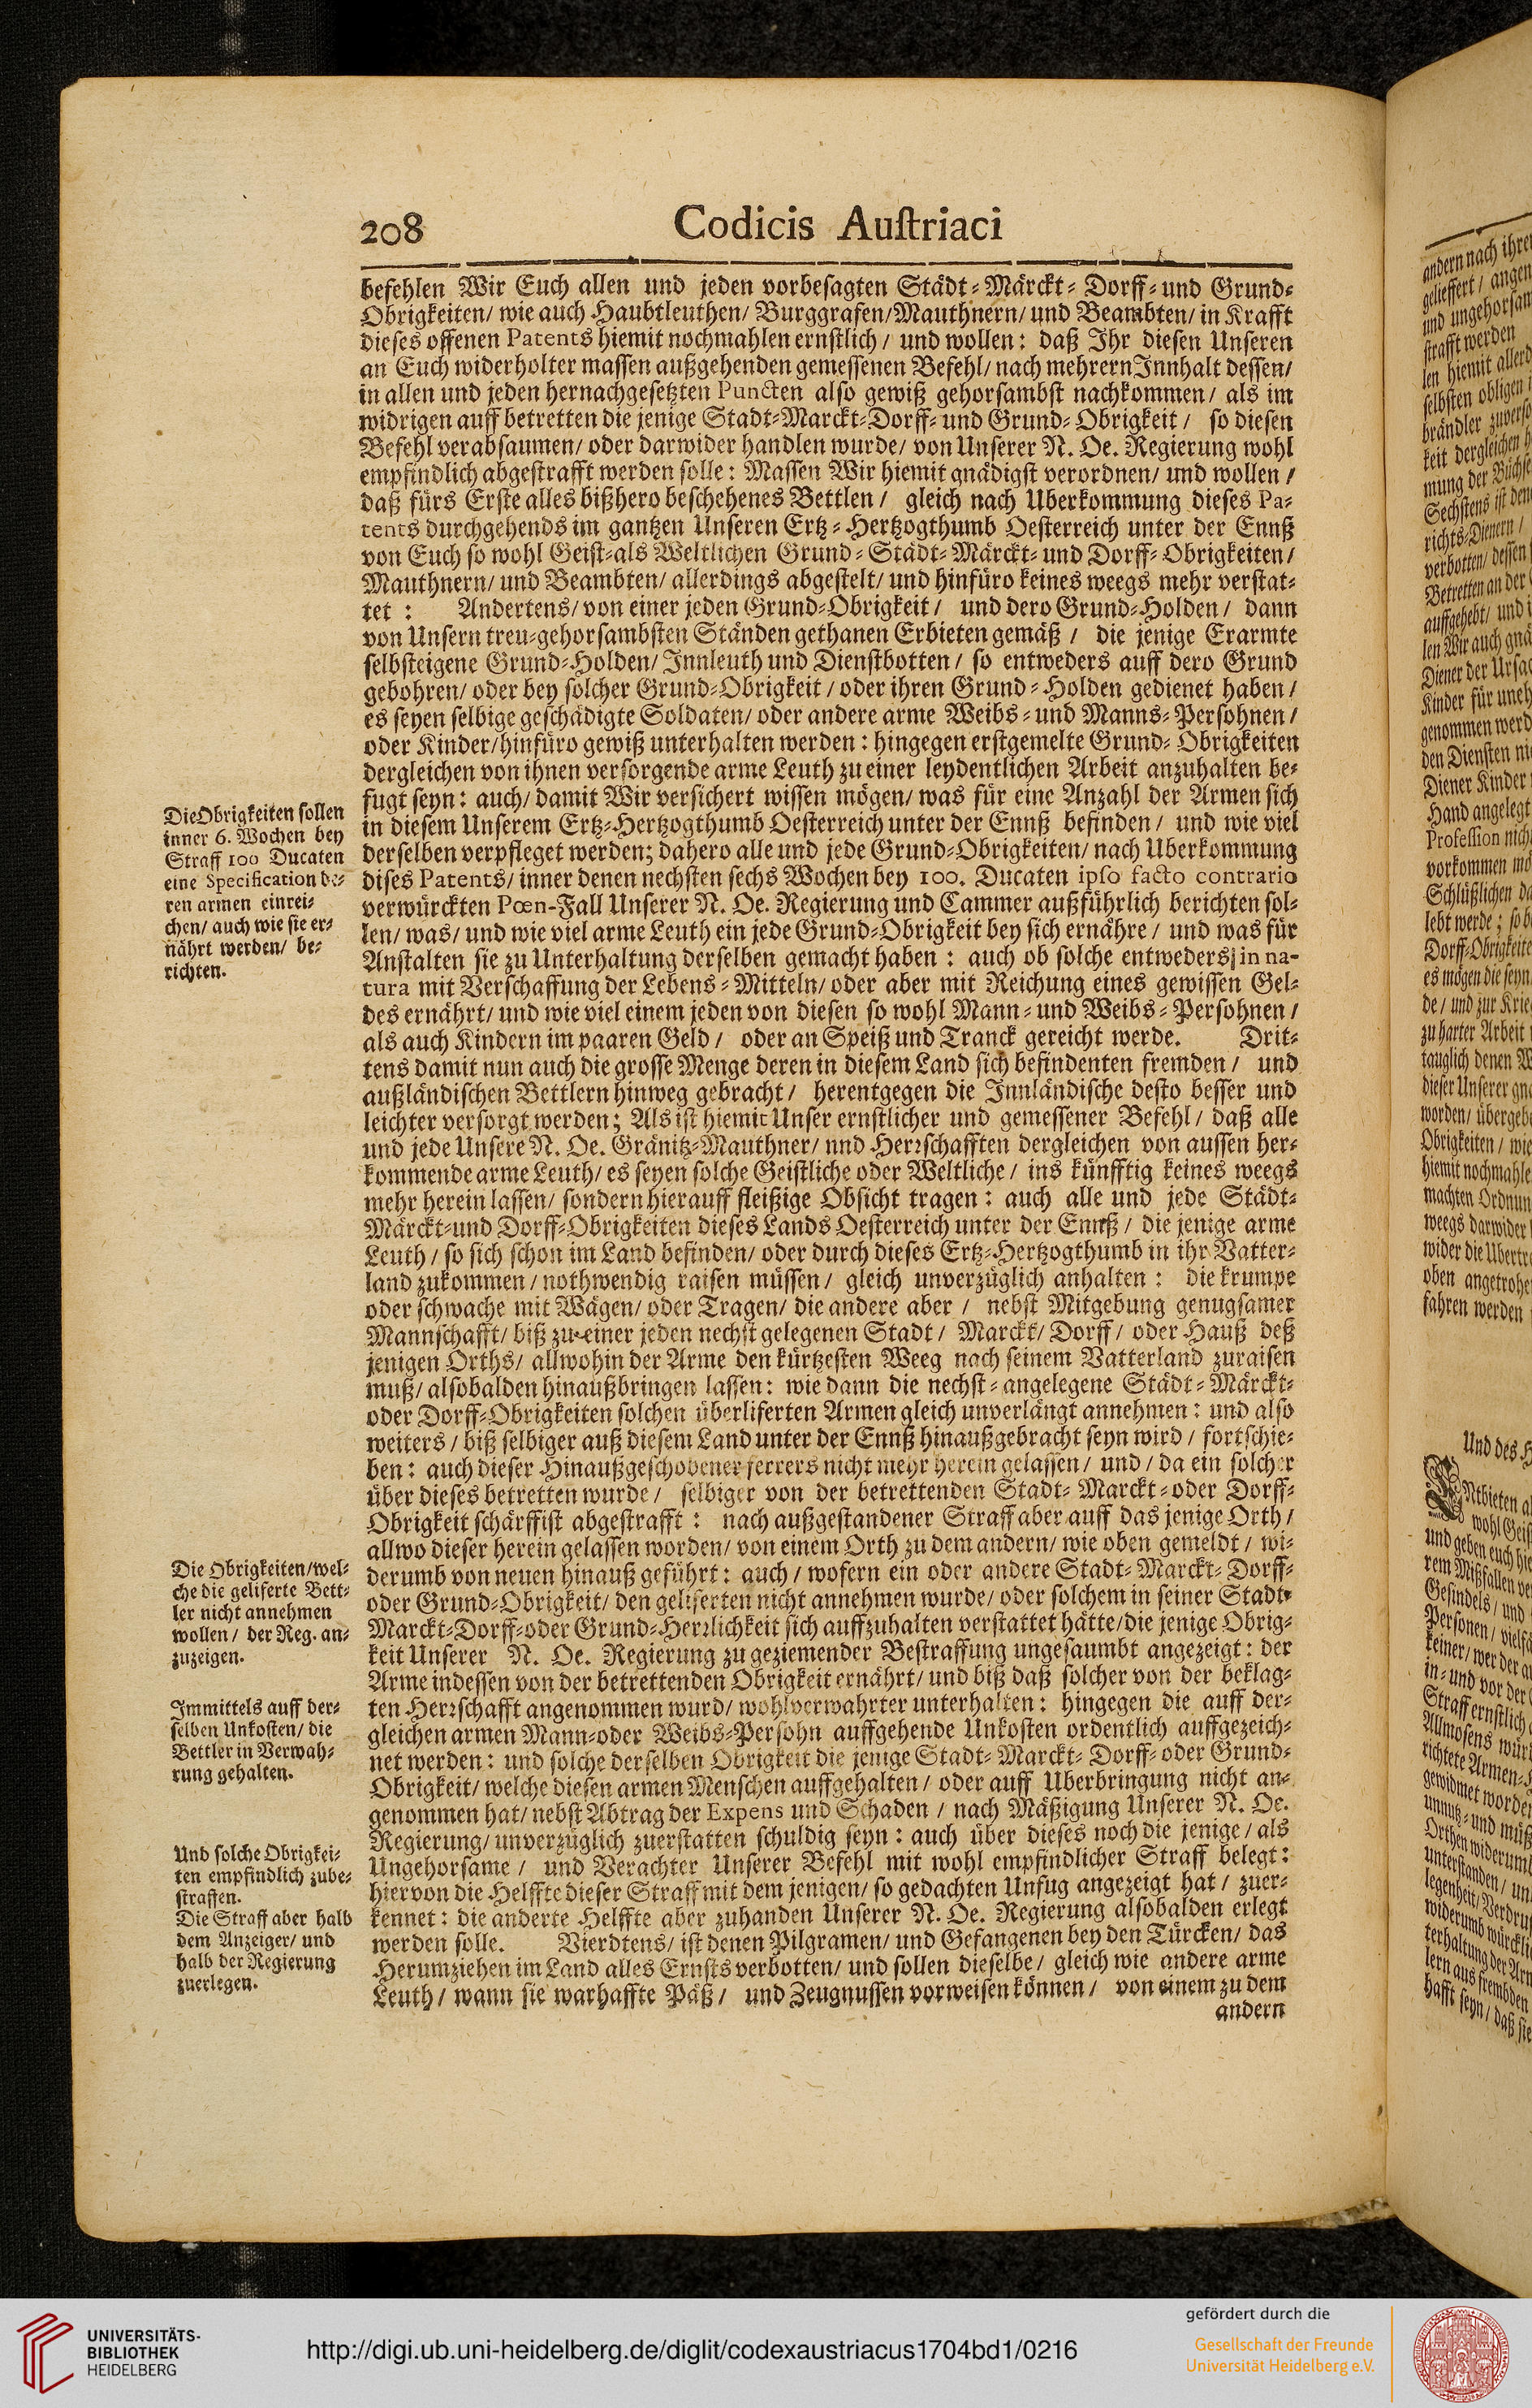 208 Codicis Auſtriaci
befehlen Wir Euch allen und jeden vorbesagten Städt-Märckt-Dorff-und Grund-
Obrigkeiten/ wie auch Haubtleuthen/ Burggrafen/Mauthnern/ und Beambten/ in Krafft
dieses offenen Patents hiemit nochmahlen ernstlich / und wollen: daß Ihr diesen Unseren
an Euch widerholter massen außgehenden gemessenen Befehl/ nach mehrern Innhalt dessen/
in allen und jeden hernachgesetzten Puncten also gewiß gehorsambst nachkommen / als im
widrigen auff betretten die jenige Stadt-Marckt-Dorff-und Grund-Obrigkeit / so diesen
Befehl verabsaumen/ oder darwider handlen wurde/ von Unserer N. Oe. Regierung wohl
empfindlich abgestrafft werden solle: Massen Wir hiemit gnädigst verordnen/ und wollen /
daß fürs Erste alles bißhero beschehenes Bettlen / gleich nach Uberkommung dieses Pa-
tents durchgehends im gantzen Unseren Ertz-Hertzogthumb Oesterreich unter der Ennß
von Euch so wohl Geist-als Weltlichen Grund-Städt-Märckt-und Dorff-Obrigkeiten /
Mauthnern/ und Beambten/ allerdings abgestelt/ und hinfüro keines weegs mehr verstat-
tet : Andertens/ von einer jeden Grund-Obrigkeit / und dero Grund-Holden / dann
von Unsern treu-gehorsambsten Ständen gethanen Erbieten gemäß / die jenige Erarmte
selbsteigene Grund-Holden/ Innleuth und Dienstbotten / so entweders auff dero Grund
gebohren/ oder bey solcher Grund-Obrigkeit / oder ihren Grund-Holden gedienet haben /
es seyen selbige geschädigte Soldaten/ oder andere arme Weibs-und Manns-Persohnen /
oder Kinder/hinfüro gewiß unterhalten werden : hingegen erstgemelte Grund-Obrigkeiten
dergleichen von ihnen versorgende arme Leuth zu einer leydentlichen Arbeit anzuhalten be-
fugt seyn: auch/ damit Wir versichert wissen mögen/ was für eine Anzahl der Armen sich
in diesem Unserem Ertz-Hertzogthumb Oesterreich unter der Ennß befinden / und wie viel
derselben verpfleget werden; dahero alle und jede Grund-Obrigkeiten/ nach Uberkommung
dises Patents/ inner denen nechsten sechs Wochen bey 100. Ducaten ipso facto contrario
verwürckten Pœn-Fall Unserer N. Oe. Regierung und Cammer außführlich berichten sol-
len/ was/ und wie viel arme Leuth ein jede Grund-Obrigkeit bey sich ernähre / und was für
Anstalten sie zu Unterhaltung derselben gemacht haben : auch ob solche entweders in na-
tura mit Verschaffung der Lebens-Mitteln/ oder aber mit Reichung eines gewissen Gel-
des ernährt/ und wie viel einem jeden von diesen so wohl Mann-und Weibs-Persohnen /
als auch Kindern im paaren Geld / oder an Speiß und Tranck gereicht werde. Drit-
tens damit nun auch die grosse Menge deren in diesem Land sich befindenten fremden / und
außländischen Bettlern hinweg gebracht / herentgegen die Innländische desto besser und
leichter versorgt werden; Als ist hiemit Unser ernstlicher und gemessener Befehl / daß alle
und jede Unsere N. Oe. Gränitz-Mauthner/ nnd Herrschafften dergleichen von aussen her-
kommende arme Leuth/ es seyen solche Geistliche oder Weltliche / ins künfftig keines weegs
mehr herein lassen/ sondern hierauff fleißige Obsicht tragen : auch alle und jede Städt-
Märckt-und Dorff-Obrigkeiten dieses Lands Oesterreich unter der Ennß / die jenige arme
Leuth / so sich schon im Land befinden/ oder durch dieses Ertz-Hertzogthumb in ihr Vatter-
land zukommen / nothwendig raisen müssen / gleich unverzüglich anhalten : die krumpe
oder schwache mit Wägen/ oder Tragen/ die andere aber / nebst Mitgebung genugsamer
Mannschafft/ biß zu einer jeden nechst gelegenen Stadt / Marckt/ Dorff / oder Hauß deß
jenigen Orths/ allwohin der Arme den kürtzesten Weeg nach seinem Vatterland zuraisen
muß/ alsobalden hinaußbringen lassen: wie dann die nechst-angelegene Städt-Märckt-
oder Dorff-Obrigkeiten solchen überliferten Armen gleich unverlängt annehmen : und also
weiters / biß selbiger auß diesem Land unter der Ennß hinaußgebracht seyn wird / fortschie-
ben : auch dieser Hinaußgeschobener ferrers nicht mehr herein gelassen / und / da ein solcher
über dieses betretten wurde / selbiger von der betrettenden Stadt-Marckt-oder Dorff-
Obrigkeit schärffist abgestrafft : nach außgestandener Straff aber auff das jenige Orth /
allwo dieser herein gelassen worden/ von einem Orth zu dem andern/ wie oben gemeldt / wi-
derumb von neuen hinauß geführt : auch / wofern ein oder andere Stadt-Marckt-Dorff-
oder Grund-Obrigkeit/ den geliferten nicht annehmen wurde/ oder solchem in seiner Stadt-
Marckt-Dorff-oder Grund-Herrlichkeit sich auffzuhalten verstattet hätte/die jenige Obrig-
keit Unserer N. Oe. Regierung zu geziemender Bestraffung ungesaumbt angezeigt : der
Arme indessen von der betrettenden Obrigkeit ernährt/ und biß daß solcher von der beklag-
ten Herrschafft angenommen wurd/ wohlverwahrter unterhalten : hingegen die auff der-
gleichen armen Mann-oder Weibs-Persohn auffgehende Unkosten ordentlich auffgezeich-
net werden : und solche derselben Obrigkeit die jenige Stadt-Marckt-Dorff-oder Grund-
Obrigkeit/ welche diesen armen Menschen auffgehalten / oder auff Uberbringung nicht an-
genommen hat/ nebst Abtrag der Expens und Schaden / nach Mäßigung Unserer N. Oe.
Regierung/ unverzüglich zuerstatten schuldig seyn : auch über dieses noch die jenige / als
Ungehorsame / und Verachter Unserer Befehl mit wohl empfindlicher Straff belegt :
hiervon die Helffte dieser Straff mit dem jenigen/ so gedachten Unfug angezeigt hat / zuer-
kennet : die anderte Helffte aber zuhanden Unserer N. Oe. Regierung alsobalden erlegt
werden solle. Vierdtens/ ist denen Pilgramen/ und Gefangenen bey den Türcken/ das
Herumziehen im Land alles Ernsts verbotten/ und sollen dieselbe / gleich wie andere arme
Leuth / wann sie warhaffte Päß / und Zeugnussen vorweisen können / von einem zu dem
andern
Die Obrigkeiten sollen
inner 6. Wochen bey
Straff 100 Ducaten
eine Specification de-
ren armen einrei-
chen/ auch wie sie er-
nährt werden/ be-
richten.
Die Obrigkeiten/wel-
che die geliferte Bett-
ler nicht annehmen
wollen / der Reg. an-
zuzeigen.
Immittels auff der-
selben Unkosten/ die
Bettler in Verwah-
rung gehalten.
Und solche Obrigkei-
ten empfindlich zube-
straffen.
Die Straff aber halb
dem Anzeiger/ und
halb der Regierung
zuerlegen.
UNIVERSITÄTS-
BIBLIOTHEK
HEIDELBERG
http://digi.ub.uni-heidelberg.de/diglit/codexaustriacus1704bd1/0216
gefördert durch die
Gesellschaft der Freunde
Universität Heidelberg e.V.